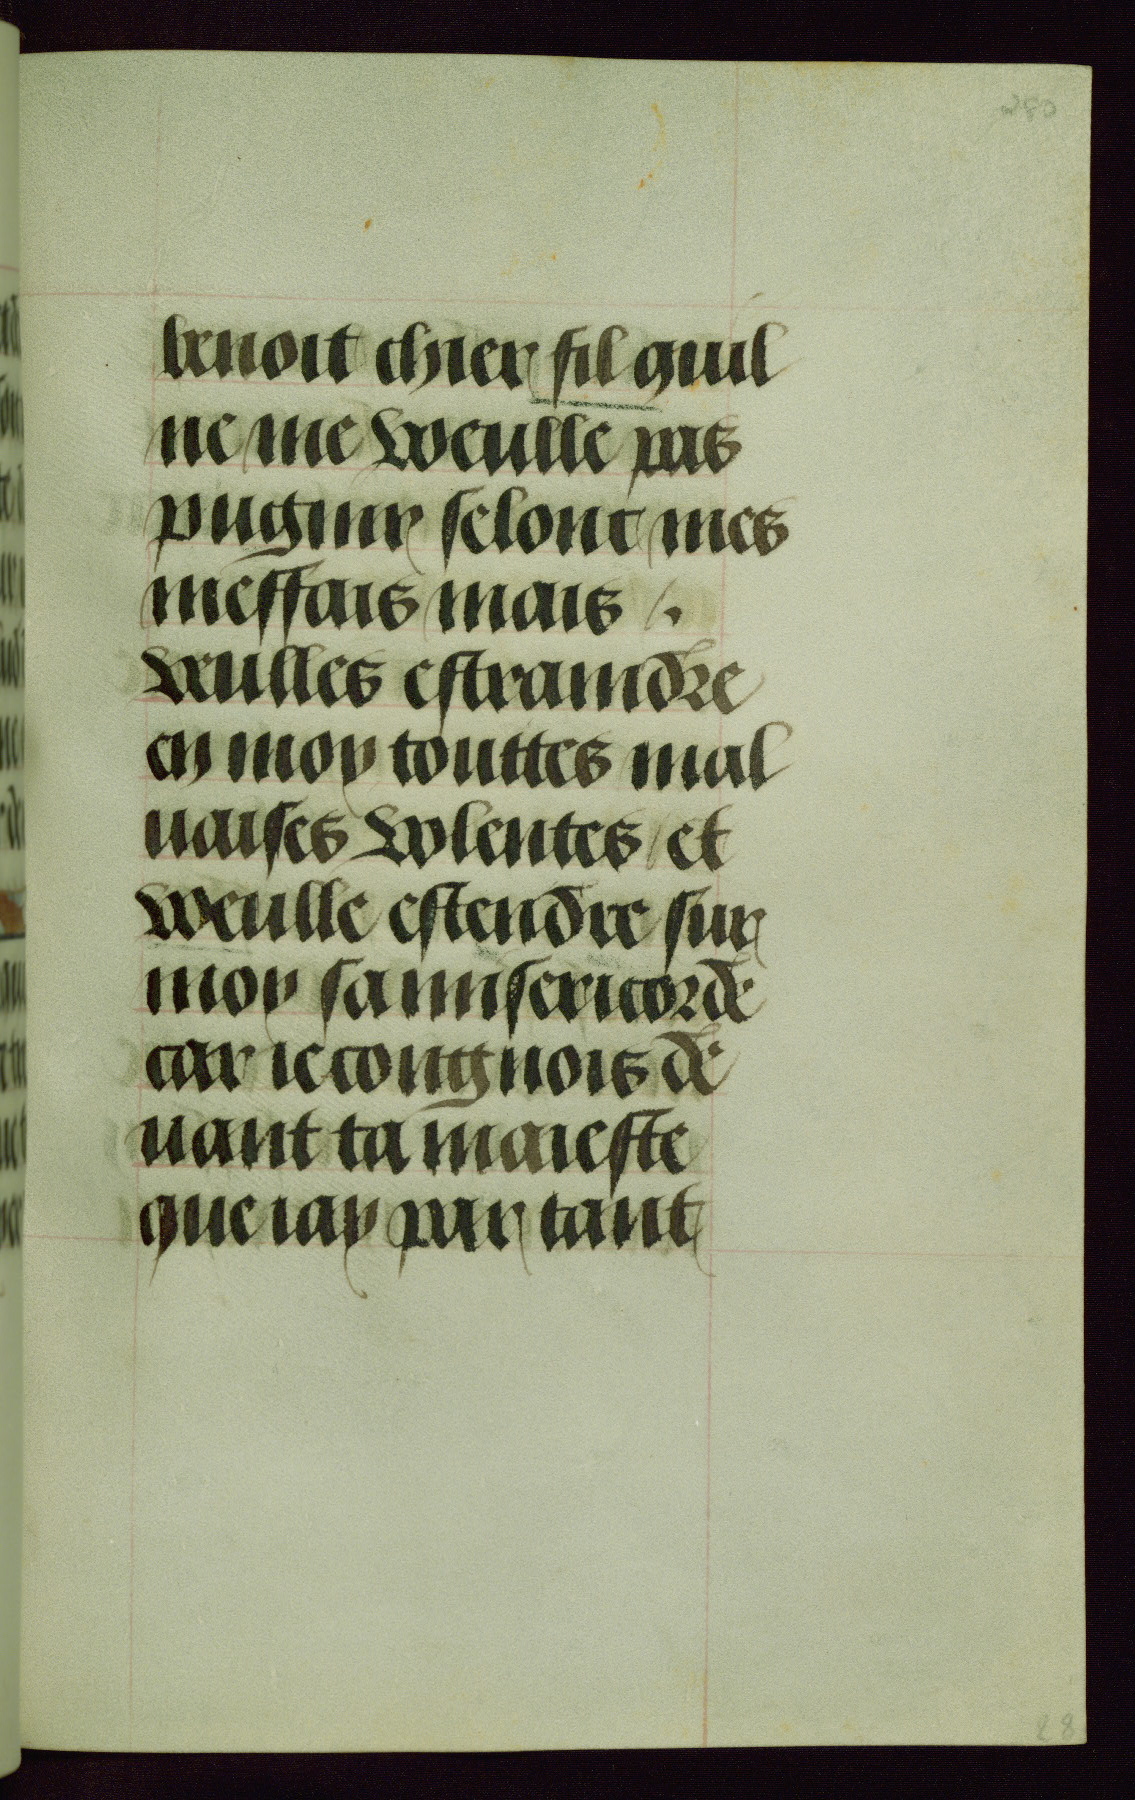 280
benoit chier fil quil
ne me weulle pas
pugnir selont mes
meffais mais /.
weulles estraindre
en moy touttes mal
uaises volentes / et
weulle estendre sur
moy sa misericorde
car ie congnois de
uant ta maieste
que iay par tant